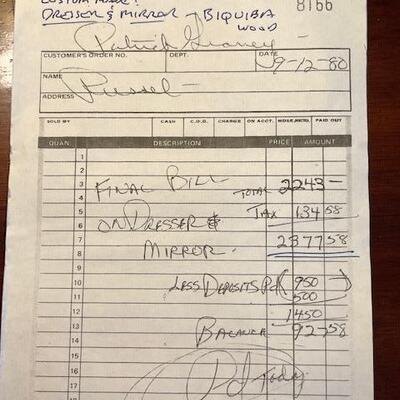 CUSTOM MADE!
DRESSER & MIRROR - BIQUIBA
WOOD
8166
Patrick
CUSTOMER'S ORDER NO. DEPT. DATE 9-12-80
NAME Russel -
ADDRESS
SOLD BY CASH C.O.D. CHARGE ON ACCT. MDSE. RETD. PAID OUT
QUAN. DESCRIPTION PRICE AMOUNT
1
2
3 FINAL BILL TOTAL 2243 -
4
5 ON DRESSER & TAX 134 58
6
7 MIRROR - 2377 58
8
9
10 LESS DEPOSITS Pd ( 950 )
11 500
12 1450
13 BALANCE 92 - 58
14
15
16 Pd Today
17
18